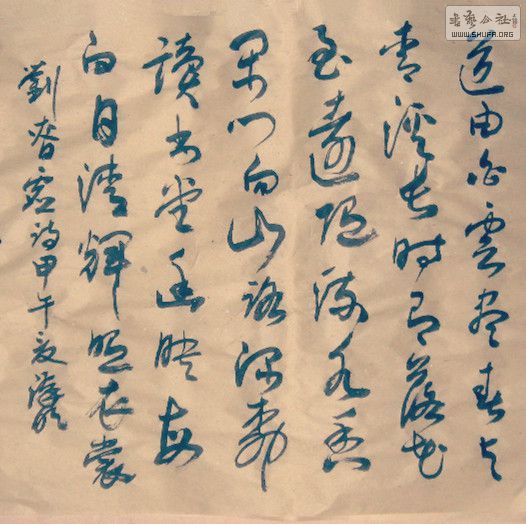 道由白雲盡春與
青溪長時有落花
至遠隨流水香
閑門向山路深柳
讀書堂幽映每
白日清輝照衣裳
劉昚虛詩甲午夏
書藝公社
WWW.SHUFA.ORG